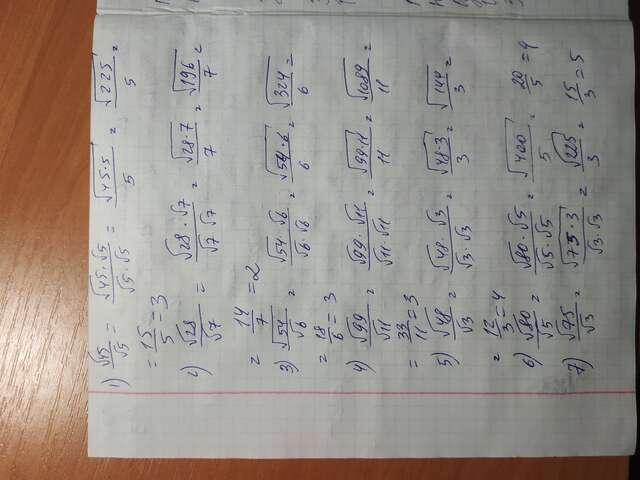 1) √45/√5 = √45·√5/√5·√5 = √45·5/5 = √225/5 =
= 15/5 = 3
2) √28/√7 = √28·√7/√7 √7 = √28·7/7 = √196/7 =
= 14/7 = 2
3) √54/√6 = √54·√6/√6·√6 = √54·6/6 = √324/6 =
= 18/6 = 3
4) √99/√11 = √99·√11/√11·√11 = √99·11/11 = √1089/11 =
= 33/11 = 3
5) √48/√3 = √48·√3/√3·√3 = √48·3/3 = √144/3 =
= 12/3 = 4
6) √80/√5 = √80·√5/√5·√5 = √400/5 = 20/5 = 4
7) √75/√3 = √75·3/√3·√3 = √225/3 = 15/3 = 5